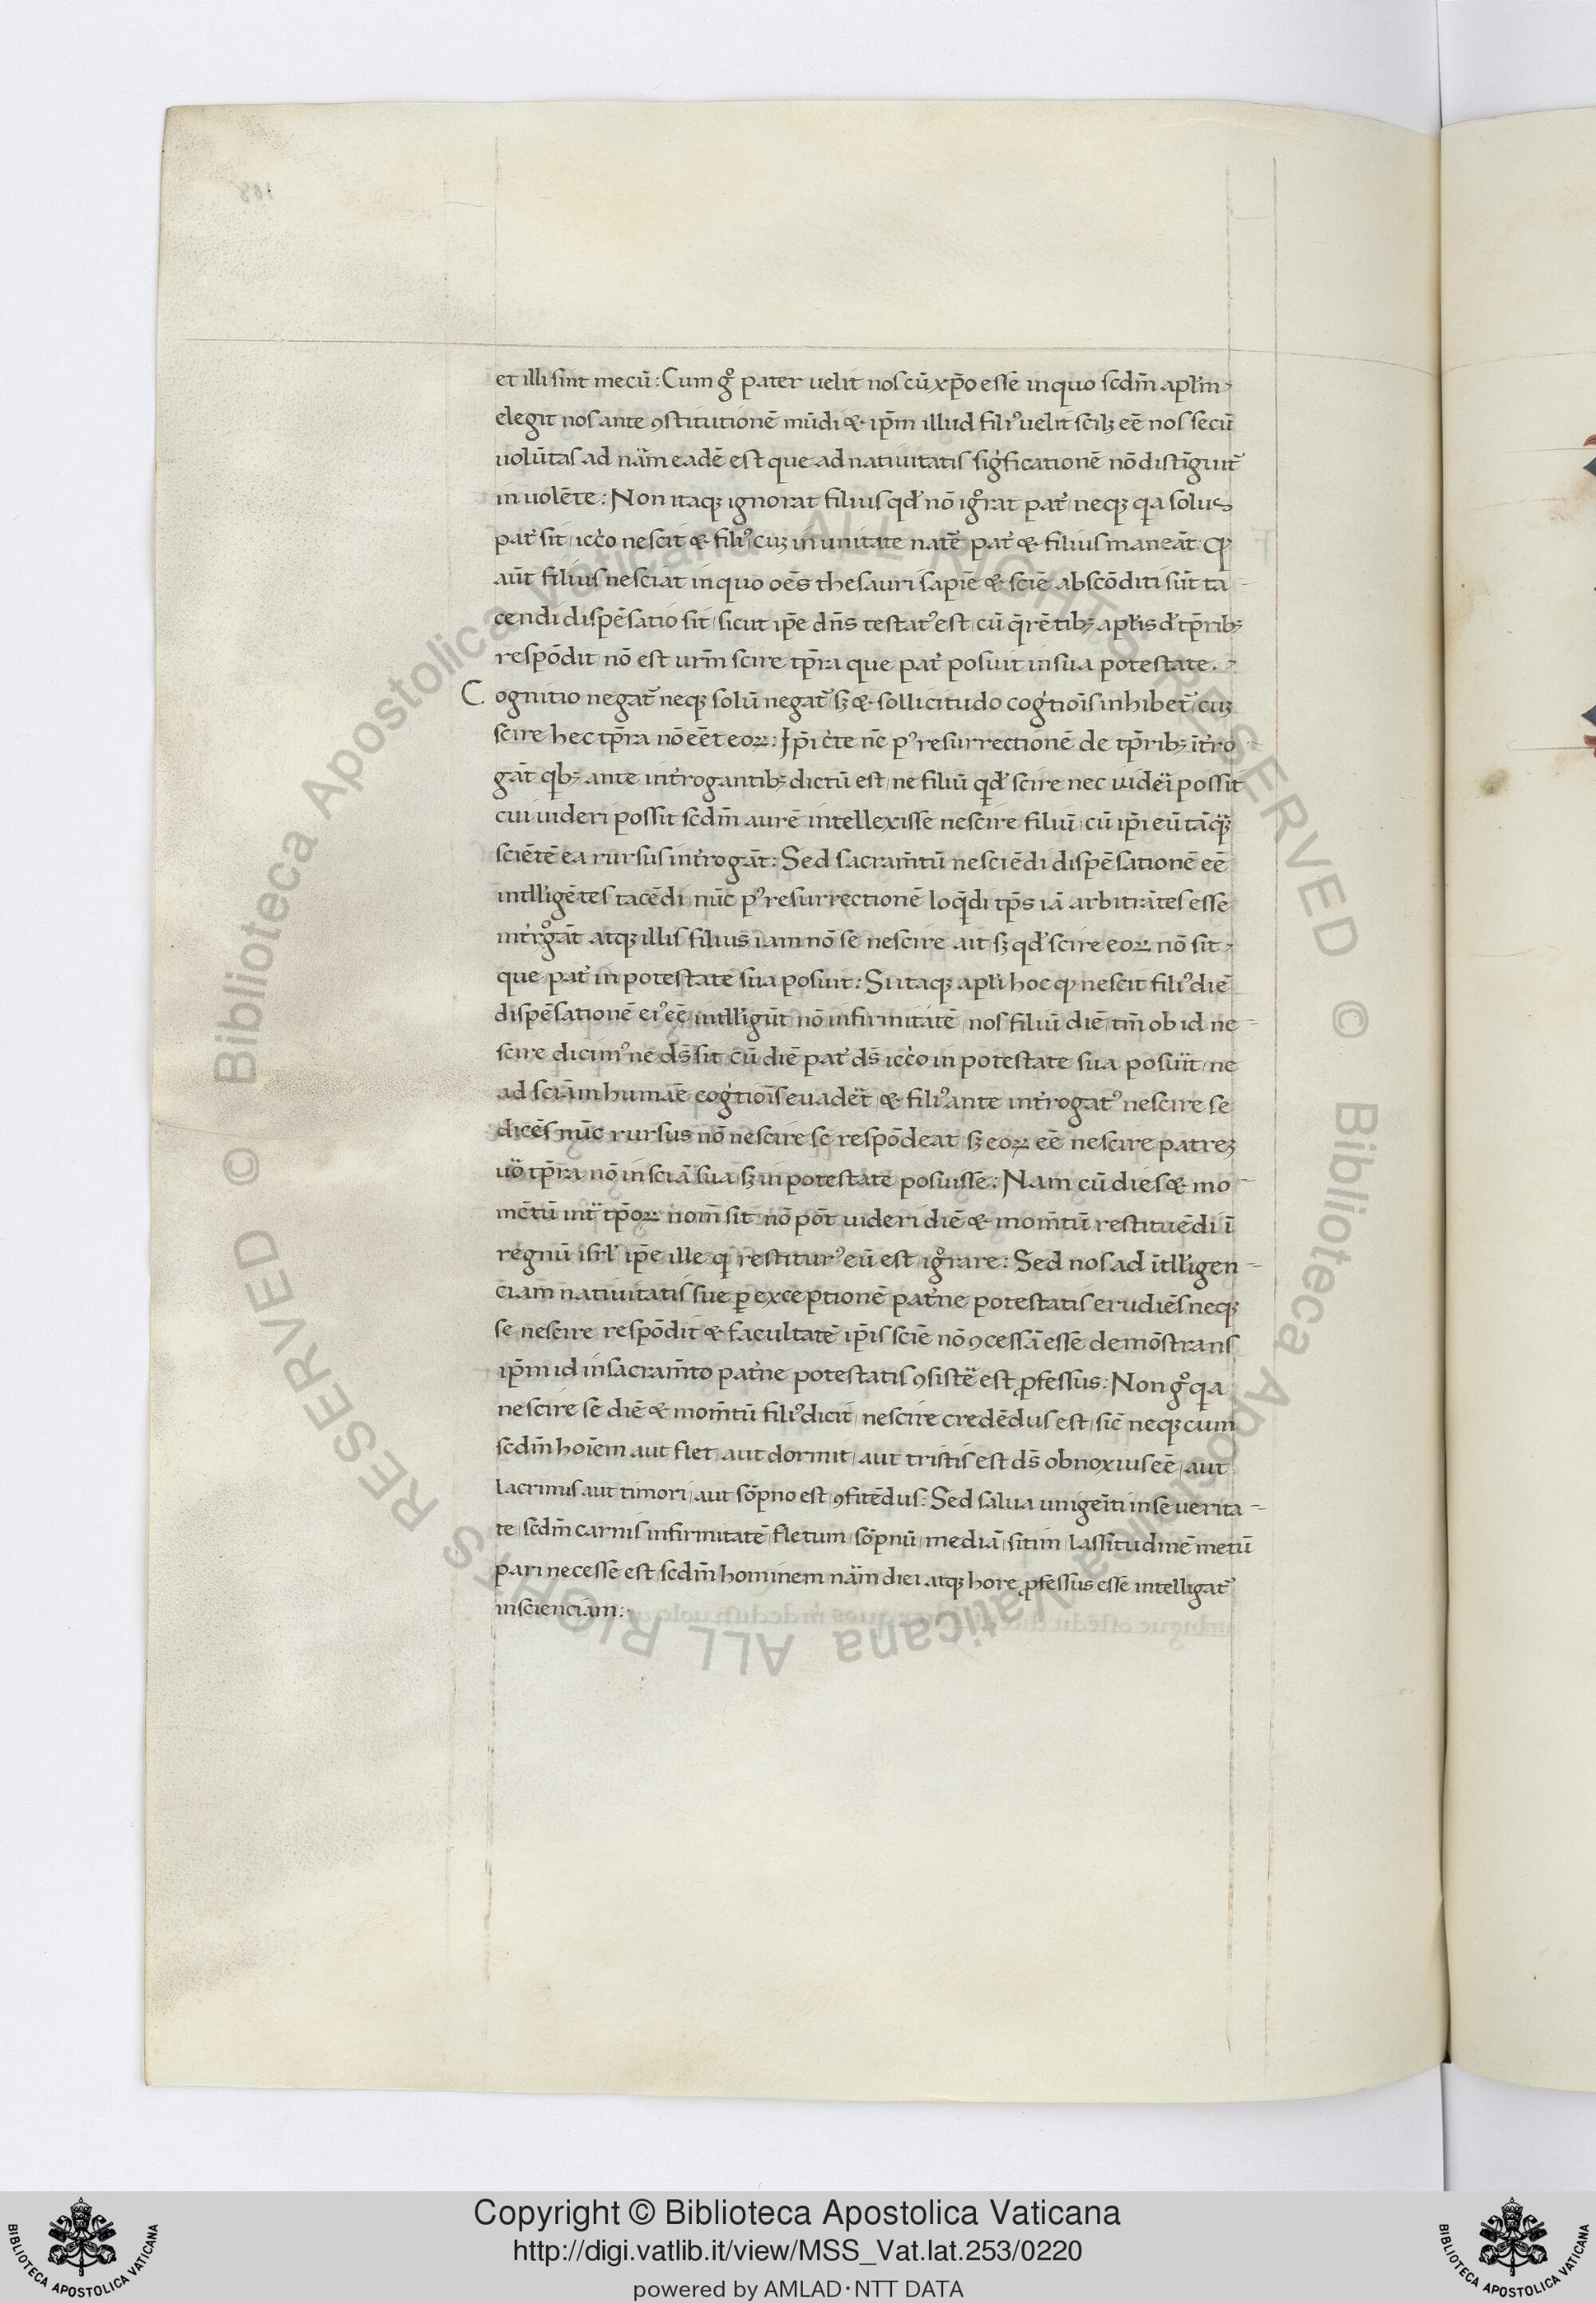 108
et illi sint mecū: Cum gͦ pater uelit nos cū xp̄o esse in quo scdm̄ apl̄m
elegit nos ante ꝯstitutionē mūdi & ip̄m illud filiꝰ uelit scilꝫ eē nos secū
uolūtas ad nām eadē est que ad natiuitatis sigͥficationē nō distīguit᷑
in uolēte: Non itaqꝫ ignorat filius qd̓ nō igͦrat pat᷑ neqꝫ qa solus
pat᷑ sit icc̓o nescit & filiꝰ cuꝫ in unitate nat̄e pat᷑ & filius maneāt: Qꝫ
aūt filius nesciat in quo oēs thesauri sapiē & sciē abscōditi sūt ta
cendi dispēsatio sit sicut ip̄e dn̄s testatꝰ est cū q̄rētibꝫ apl̄is d̓ tp̄ribꝫ
respōdit nō est urm̄ scire tp̄ra que pat᷑ posuit in sua potestate.
Cognitio negat᷑ neqꝫ solū negat᷑ sꝫ & sollicitudo cogͥtiōis inhibet᷑ cuꝫ
scire hec tp̄ra nō eēt eoꝝ: Ip̄i c̓te nc̄ pꝰ resurrectionē de tp̄ribꝫ īt̓ro
gāt qbꝫ ante int̓rogantibꝫ dictū est ne filiū qd̓ scire nec uideri possit
cui uideri possit scdm̄ aurē intellexisse nescire filiū cū ip̄i eū tāqᷓ
sciētē ea rursus int̓rogāt: Sed sacram̄tū nesciēdi dispēsationē eē
intll̓igētes tacēdi nūc pꝰ resurrectionē loq̄di tp̄s iā arbitrātes esse
int̓rgͦāt atqꝫ illis filius iam nō se nescire ait sꝫ qd̓ scire eoꝝ nō sit
que pat᷑ in potestate sua posuit: Si itaqꝫ apl̄i hoc qꝫ nescit filiꝰ diē
dispēsationē eiꝰ eē intll̓igūt nō infirmitatē nos filiū diē tm̄ ob id ne
scire dicimꝰ ne ds̄ sit cū diē pat᷑ ds̄ icc̓o in potestate sua posuit ne
ad sciām humaē cogͥtiōis euadet & filiꝰ ante int̓rogatꝰ nescire se
dicēs nūc rursus nō nescire se respōdeat sꝫ eoꝝ eē nescire patreꝫ
uͦ tp̄ra nō in sciā sua sꝫ in potestate posuisse: Nam cū dies & mo
mētū intᷓ tp̄oꝝ nom̄ sit nō pōt uideri diē & mom̄tū restituēdi ī
regnū isrl̄ ip̄e ille qͥ restiturꝰ eū est igͦrare: Sed nos ad ītll̓igen
ciam natiuitatis sue ꝑ exceptionē pat̓ne potestatis erudiēs neqꝫ
se nescire respōdit & facultatē ip̄is sciē nō ꝯcessā esse demōstrans
ip̄m id in sacram̄to pat̓ne potestatis ꝯsistē est ꝓfessus: Non gͦ qa
nescire se diē & mom̄tū filiꝰ dicit nescire credēdus est sic̄ neqꝫ cum
scdm̄ hoīem aut flet aut dormit aut tristis est ds̄ obnoxius eē aut
lacrimis aut timori aut sōpno est ꝯfitēdus: Sed salua unigeīti in se uerita
te scdm̄ carnis infirmitatē fletum sōpnū mediā sitim lassitudinē metū
pari necesse est scdm̄ hominem nām diei atqꝫ hore ꝓfessus esse intelligat᷑
inscienciam:
Copyright © Biblioteca Apostolica Vaticana
http://digi.vatlib.it/view/MSS_Vat.lat.253/0220
powered by AMLAD·NTT DATA